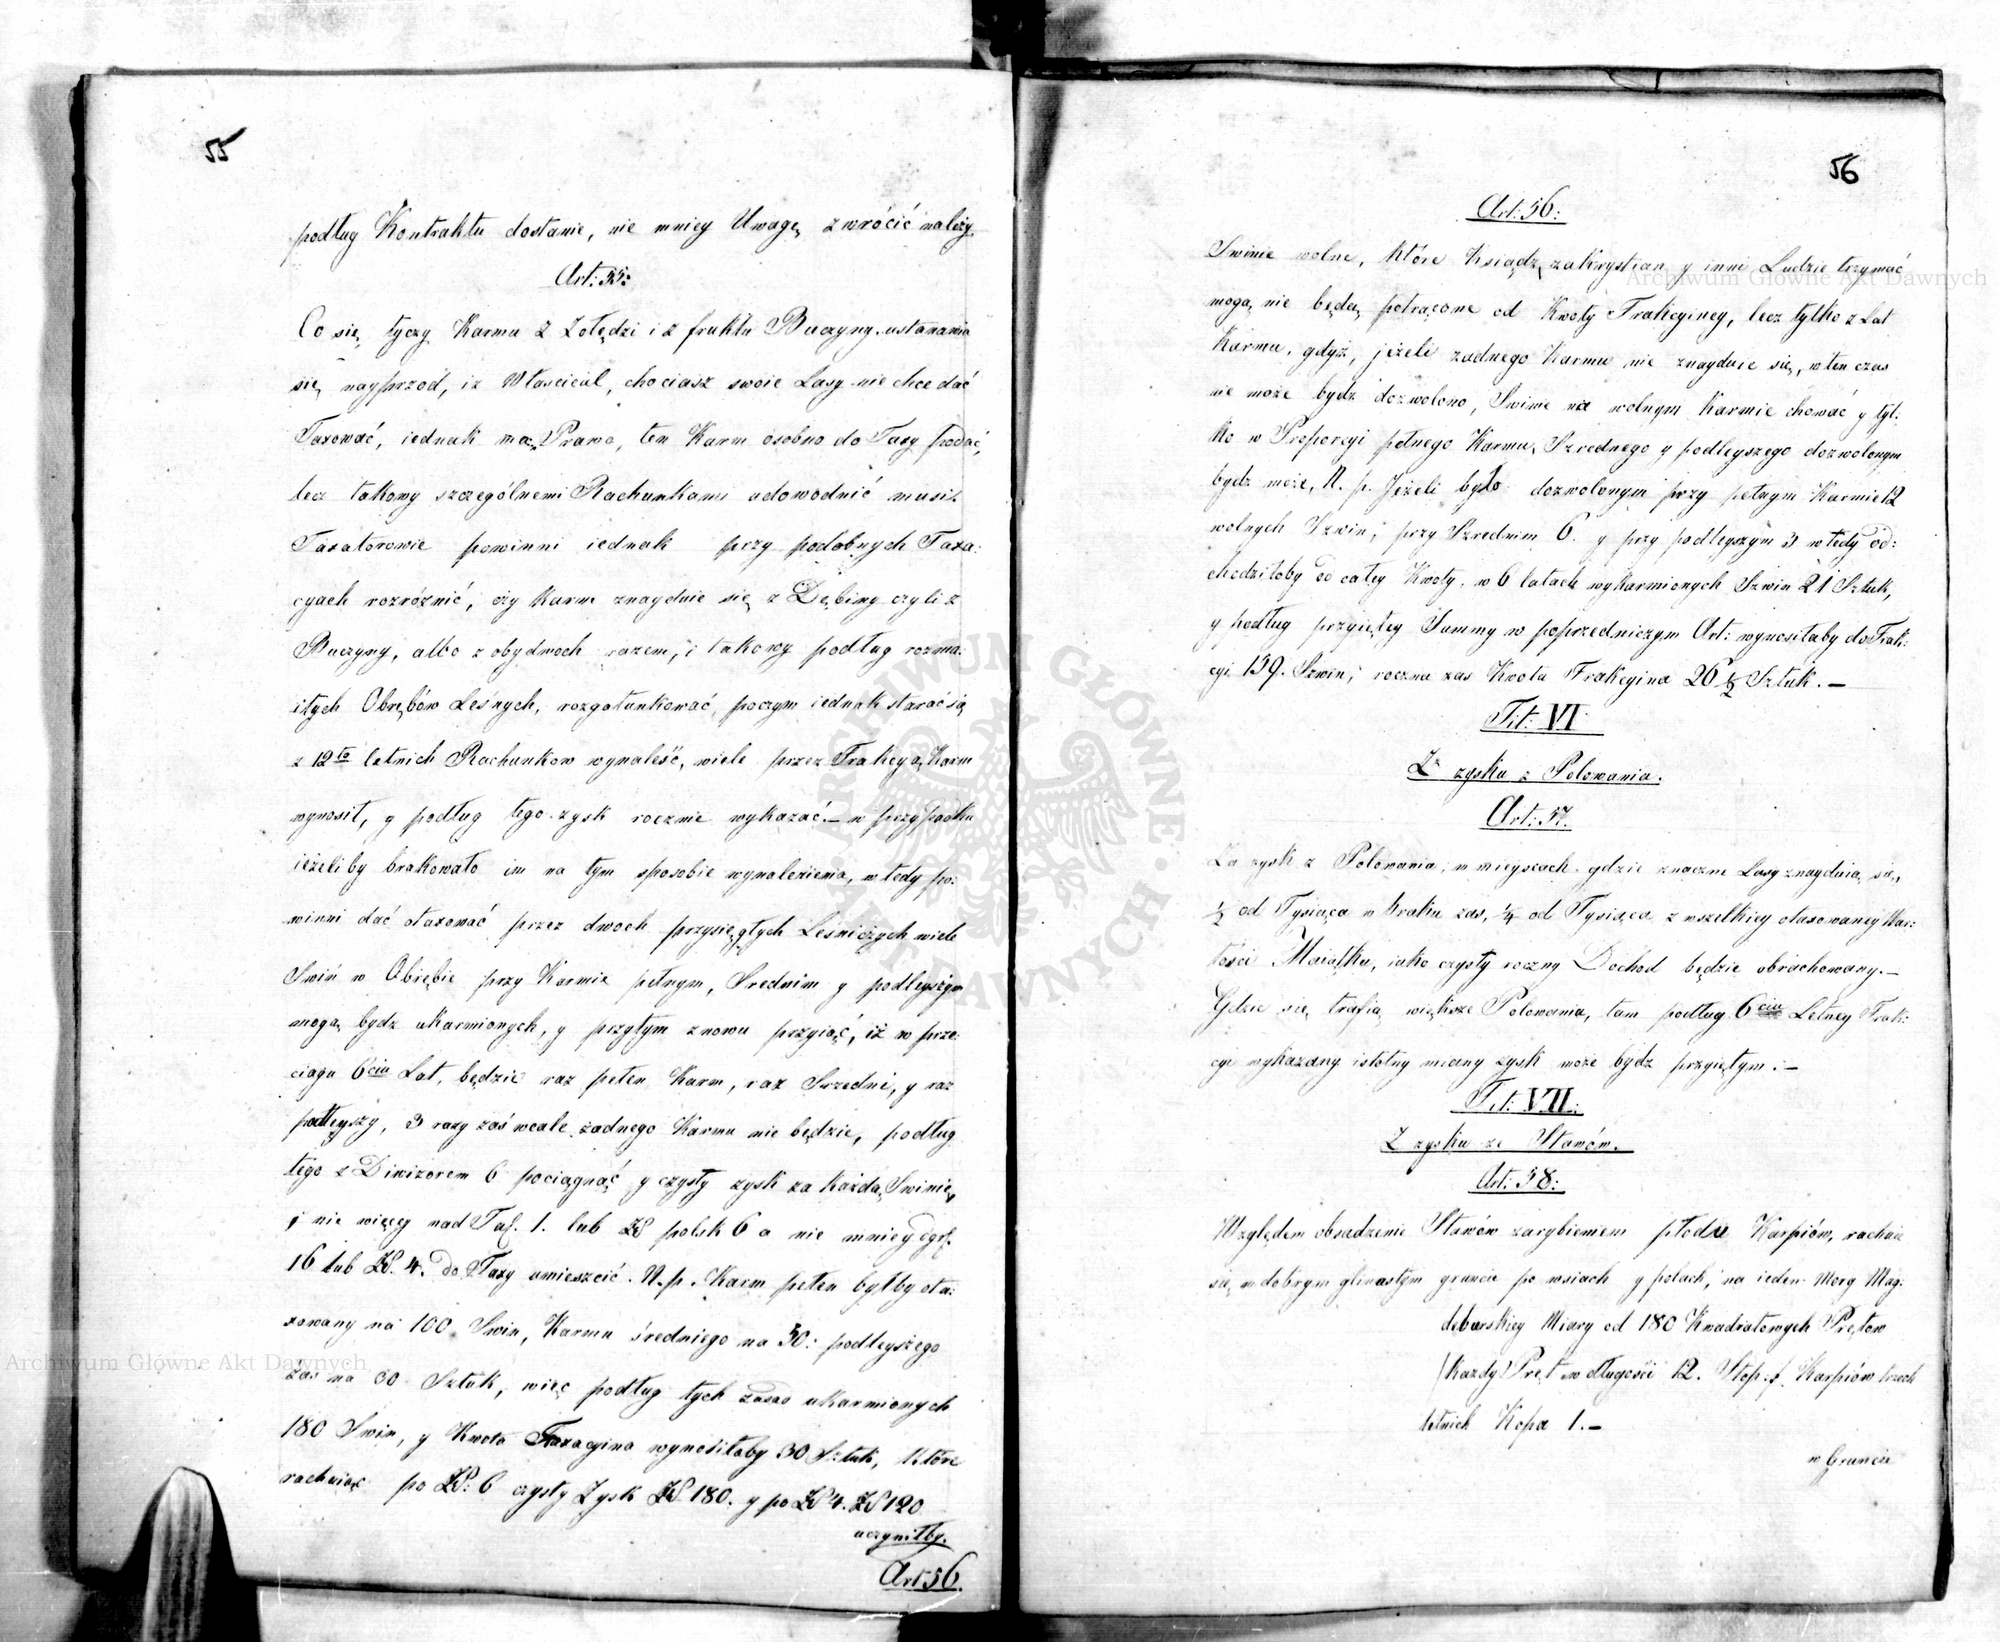 55
podług Kontraktu dostanie, nie mniey Uwagę zwrócić należy.
Art: 55:
Co się tyczy Karmu z Zołędzi i z fruktu Buczyny ustanawia
się nayprzod, iz Własciciel, chociasz swoie Lasy nie chce dać
Taxować, iednak ma Prawo, ten Karm osobno do Taxy podać,
lecz takowy szczególnemi Rachunkami udowodnić musi.
Taxatorowie powinni iednak przy podobnych Taxa:
cyach rozróżnić, czy Karm znayduie się z Dębiny czyli z
Buczyny, albo z obydwoch razem, i takowy podług rozma:
itych Obrębów Leśnych, rozgatunkować, poczym iednak starać się
z 12to letnich Rachunkow wynaleść, wiele przez Frakcyą Karm
wynosił, y podług tego zysk rocznie wykazać. – w przypadku
ieżeliby brakowało im na tym sposobie wynalezienia, wtedy po:
winni dać otaxować przez dwoch przysięgłych Leśniczych wiele
Swiń w Obrębie przy Karmie pełnym, Srednim y podleyszym
mogą bydz ukarmionych, y przytym znowu przyiąć, iż w prze:
ciągu 6ciu Lat, będzie raz pełen Karm, raz Srzedni, y raz
podleyszy, 3 razy zaś wcale żadnego Karmu nie będzie, podług
tego z Diwizorem 6 pociągnąć y czysty zysk za każdą Swinię,
i nie więcey nad Tal. 1. lub Zł polsk 6 a nie mniey dgr.
16 lub Zł. 4. do Taxy umieszcić. N. p. Karm pełen byłby ota:
xowany na 100 Swin, Karmu średniego na 50: podleyszego
zas na 30 Sztuk, więc podług tych zasad ukarmionych
180 Swin, y Kwota Frakcyina wynosiłaby 30 Sztuk, które
rachuiąc po Zł: 6 czysty Zysk Zł. 180. y po Zł 4. Zł 120
uczyniłby.
Art 56.
56
Art: 56:
Swinie wolne, które Ksiądz, zakrystian y inni Ludzie trzymać
mogą nie będą potrącone od Kwoty Frakcyiney, lecz tylko z Lat
Karmu, gdyż, jeżeli zadnego Karmu nie znayduie się, w ten czas
nie może bydz dozwolono, Swinie na wolnym Karmie chować y tyl:
ko w Proporcyi pełnego Karmu, Szrednego y podleyszego dozwolonym
bydz może, N. p. Jeżeli było dozwolonym przy pełnym Karmie 12
wolnych Szwin, przy Szrednim 6. y przy podleyszym 3 wtedy od:
chodziłoby od całey Kwoty, w 6 latach wykarmionych Szwin 21 Sztuk,
y podług przyiętey Summy w poprzedniczym Art: wynosiłaby do Frak:
cyi 159. Szwin, roczna zas Kwota Frakcyina 26 1/2 Sztuk. –
Tit: VI:
Z zysku z Polowania.
Art: 57.
Za zysk z Polowania, w mieyscach gdzie znaczne Lasy znayduią się,
1/2 od Tysiąca w braku zas, 1/4 od Tysiąca z wszelkiey otaxowaney War:
tości Maiątku, iako czysty roczny Dochod będzie obrachowany. –
Gdzie się trafią większe Polowania, tam podług 6ciu Letney Frak:
cyi wykazany istotny miany zysk może bydz przyiętym. –
Tit: VII:
Z zysku ze Stawów.
Art: 58:
Względem obsadzenie Stawów zarybieniem płodu Karpiów, rachuie
się w dobrym glinastym gruncie po wsiach y polach, na ieden Morg Mag:
deburskiey Miary od 180 Kwadratowych Prętow
(Kazdy Pręt w długości 12. Stop.) Karpiów trzech
letnich Kopa 1. –
w Gruncie